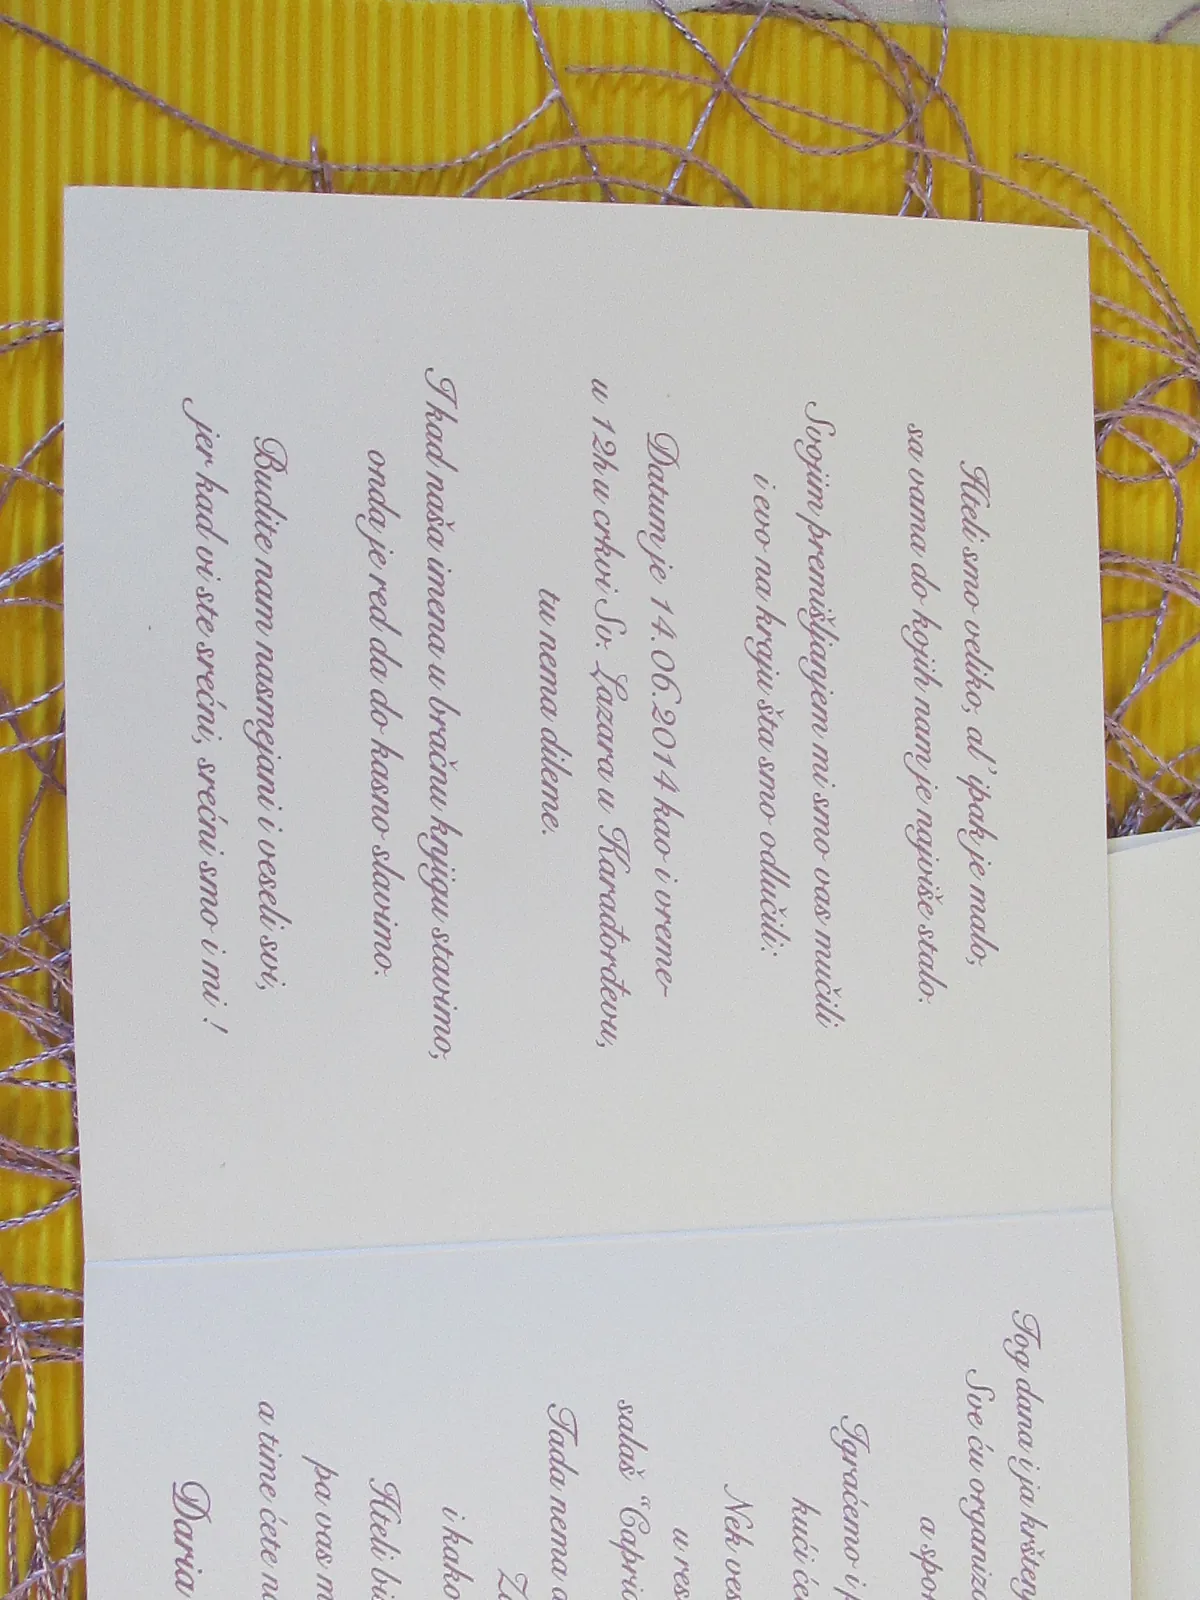 Hteli smo veliko, al' ipak je malo,
sa vama do kojih nam je najviše stalo.
Svojim premišljanjem mi smo vas mučili
i evo na kraju šta smo odlučili:
Datum je 14.06.2014 kao i vreme
u 12h u crkvi Sv. Lazara u Karađorđevu,
tu nema dileme.
I kad naša imena u bračnu knjigu stavimo,
onda je red da do kasno slavimo.
Budite nam nasmejani i veseli svi,
jer kad vi ste srećni, srećni smo i mi !
Tog dana i ja
Sve ću
a
Igraćemo i
kući
Nek
u
salaš "
Tada nema
i kako
Hteli
pa vas
a time ćete
Daria